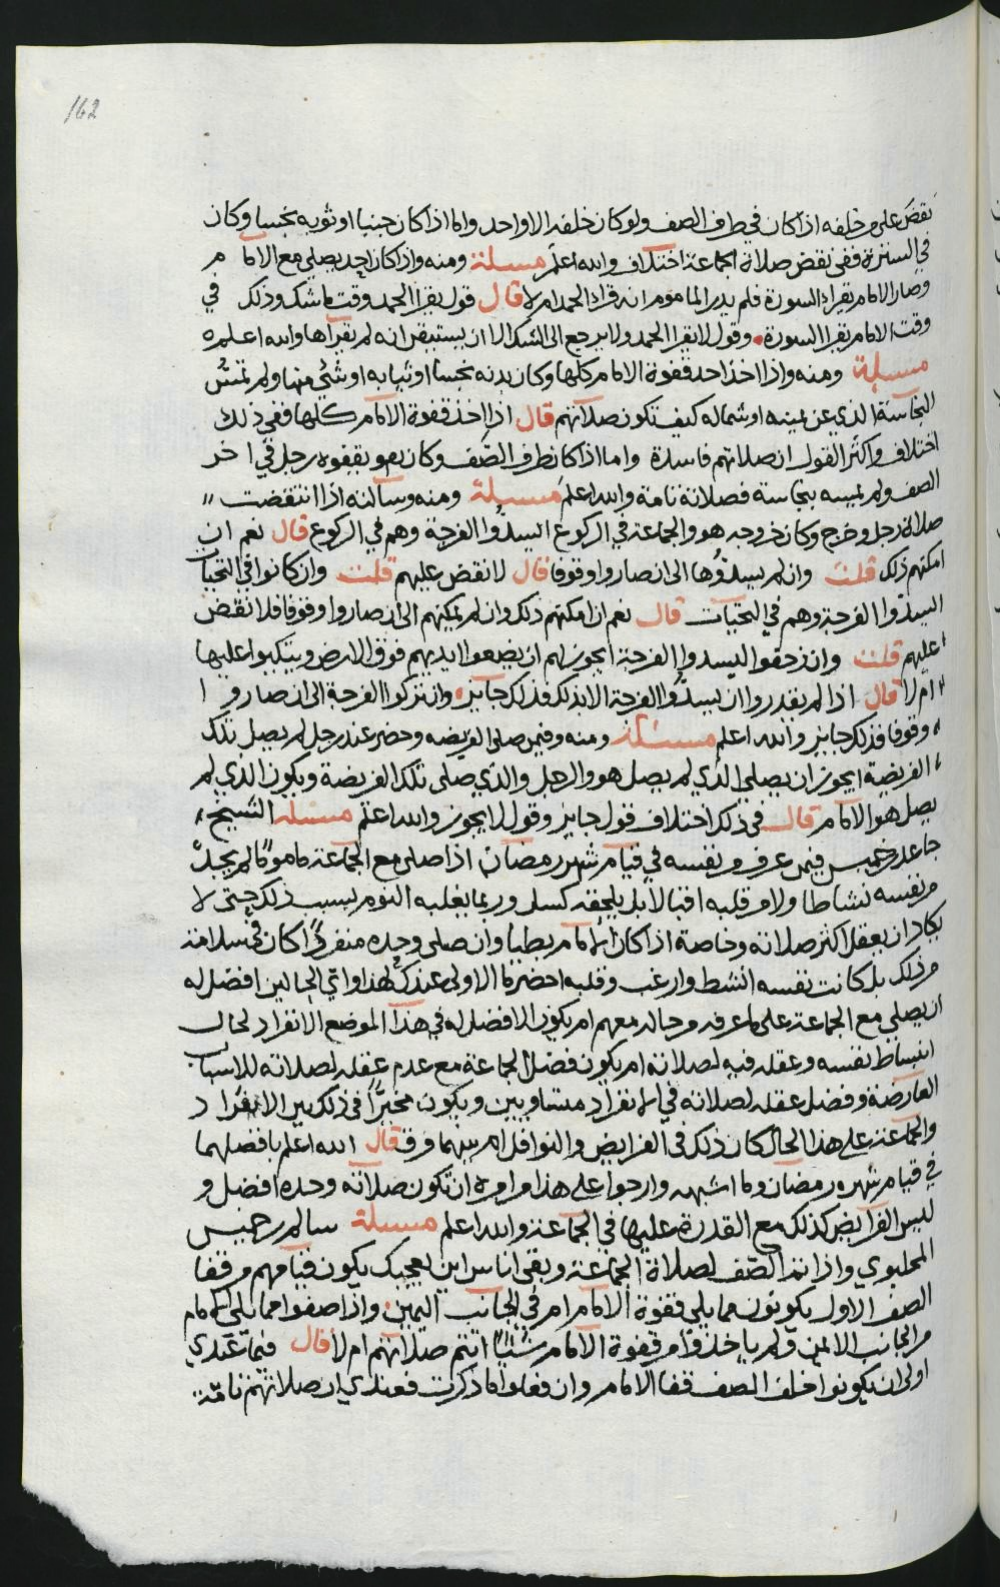 162
نقض على من خلفه اذا كان في طرف الصف ولو كان خلفه الا واحد واما اذا كان جنبا او ثوبه نجسا وكان
في السترة ففي نقض صلاة الجماعة اختلاف والله اعلم مسئلة ومنه واذا كان احد يصلي مع الاما م
وصار الامام يقرا السورة فلم يدر الماموم انه قرا الحمد ام لا قال قول يقرا الحمد وقت ما شك وذلك في
وقت الامام يقرا السورة وقول لا يقرا الحمد ولا يرجع الى الشك الا ان يستيقن انه لم يقراها والله اعلم
مسئلة ومنه واذا اخذ احد قفوة الامام كلها وكان بدنه نجسا او ثيابه او شي منها ولم تمس
النجاسة الذي عن يمينه او شماله كيف تكون صلاتهم قال اذا اخذ قفوة الامام كلها ففي ذلك
اختلاف واكثر القول ان صلاتهم فاسدة واما اذا كان طرف الصف وكان هو يقفوه رجل في اخر
الصف ولم يمسه بنجاسة فصلاته تامة والله اعلم مسئلة ومنه وسالته اذا انتقضت
صلاة رجل وخرج وكان خروجه هو والجماعة في الركوع ايسدوا الفرجة وهم في الركوع قال نعم ان
امكنهم ذلك قلت وان لم يسدوها الى ان صاروا وقوفا قال لا نقض عليهم قلت وان كانوا في التحيات
ايسدوا الفرجة وهم في التحيات قال نعم ان امكنهم ذلك وان لم يمكنهم الى ان صاروا وقوفا فلا نقض
عليهم قلت وان زحفوا ليسدوا الفرجة ايجوز لهم ان يضعوا ايديهم فوق الارض ويتكبوا عليها
ام لا قال اذا لم يقدروا ان يسدوا الفرجة الا بذلك فذلك جايز وان تركوا الفرجة الى ان صارو ا
وقوفا فذلك جايز والله اعلم مسئلة ومنه وفيمن صلى الفريضه وحضر عنده رجل لم يصل تلك
الفريضة ايجوز ان يصلي الذي لم يصل هو والرجل والذي صلى تلك الفريضة ويكون الذي لم
يصل هو الامام قال في ذلك اختلاف قول جايز وقول لا يجوز والله اعلم مسئلة الشيخ
جاعد بن خميس فيمن عرف من نفسه في قيام شهر رمضان اذا صلى مع الجماعة ماموما لم يجد
من نفسه نشاطا ولا من قلبه اقبالا بل يلحقه كسل وربما يغلبه النوم بسبب ذلك حتى لا
يكاد ان يعقل اكثر صلاته وخاصة اذا كان الامام بطيا وان صلى وحده منفردا كان في سلامة
من ذلك بل كانت نفسه انشط وارغب وقلبه احضر ما الاولى عندك لهذا واي الحالين افضل له
ان يصلي مع الجماعة على ما عرفه من حاله معهم ام يكون الافضل له في هذا الموضع الانفراد لحال
انبساط نفسه وعقله فيه لصلاته ام يكون فضل الجماعة مع عدم عقله لصلاته للاسباب
العارضة وفضل عقله لصلاته في الانفراد متساويين ويكون مخيرا في ذلك بين الانفراد
والجماعة على هذا الحال كان ذلك في الفرايض والنوافل ام بينهما فرق قال الله اعلم بافضلهما
في قيام شهر رمضان وما اشبهه وارجوا على هذا من امره ان تكون صلاته وحده افضل و
ليس الفرايض كذلك مع القدرة عليها في الجماعة والله اعلم مسئلة سالم بن خميس
المحليوي واذا تم الصف لصلاة الجماعة وبقي اناس اين يعجبك يكون قيامهم من قفا
الصف الاول يكونون مما يلي قفوة الامام ام في الجانب اليمين واذا صفوا مما يلي الامام
من الجانب الايمن ولم ياخذوا من قفوة الامام شيئا اتتم صلاتهم ام لا قال فيما عندي
اولى ان يكونوا خلف الصف قفا الامام وان فعلوا ما ذكرت فعندي ان صلاتهم تامة